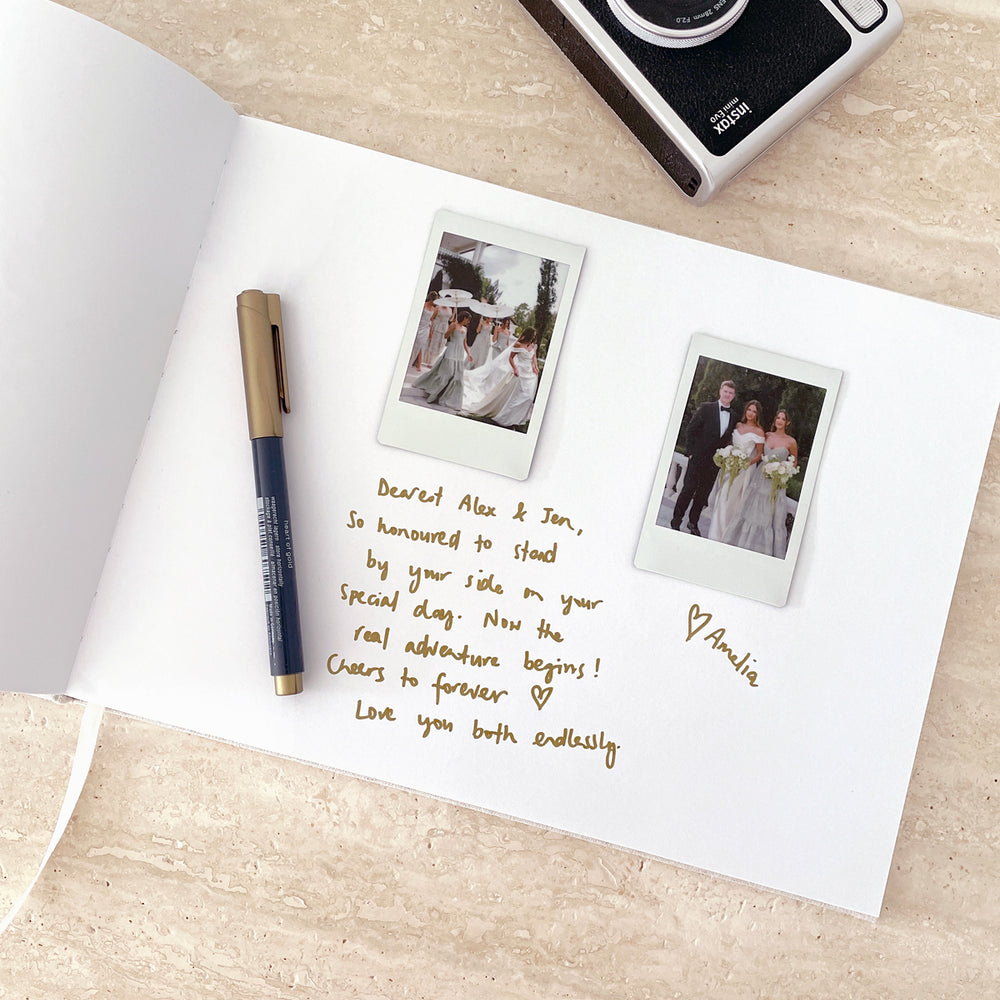 LENS 28mm F2.0
instax
mini Evo
Dearest Alex & Jen,
So honoured to stand
by your side on your
special day. Now the
real adventure begins!
Cheers to forever ♡
Love you both endlessly.
♡ Amelia
heart of gold